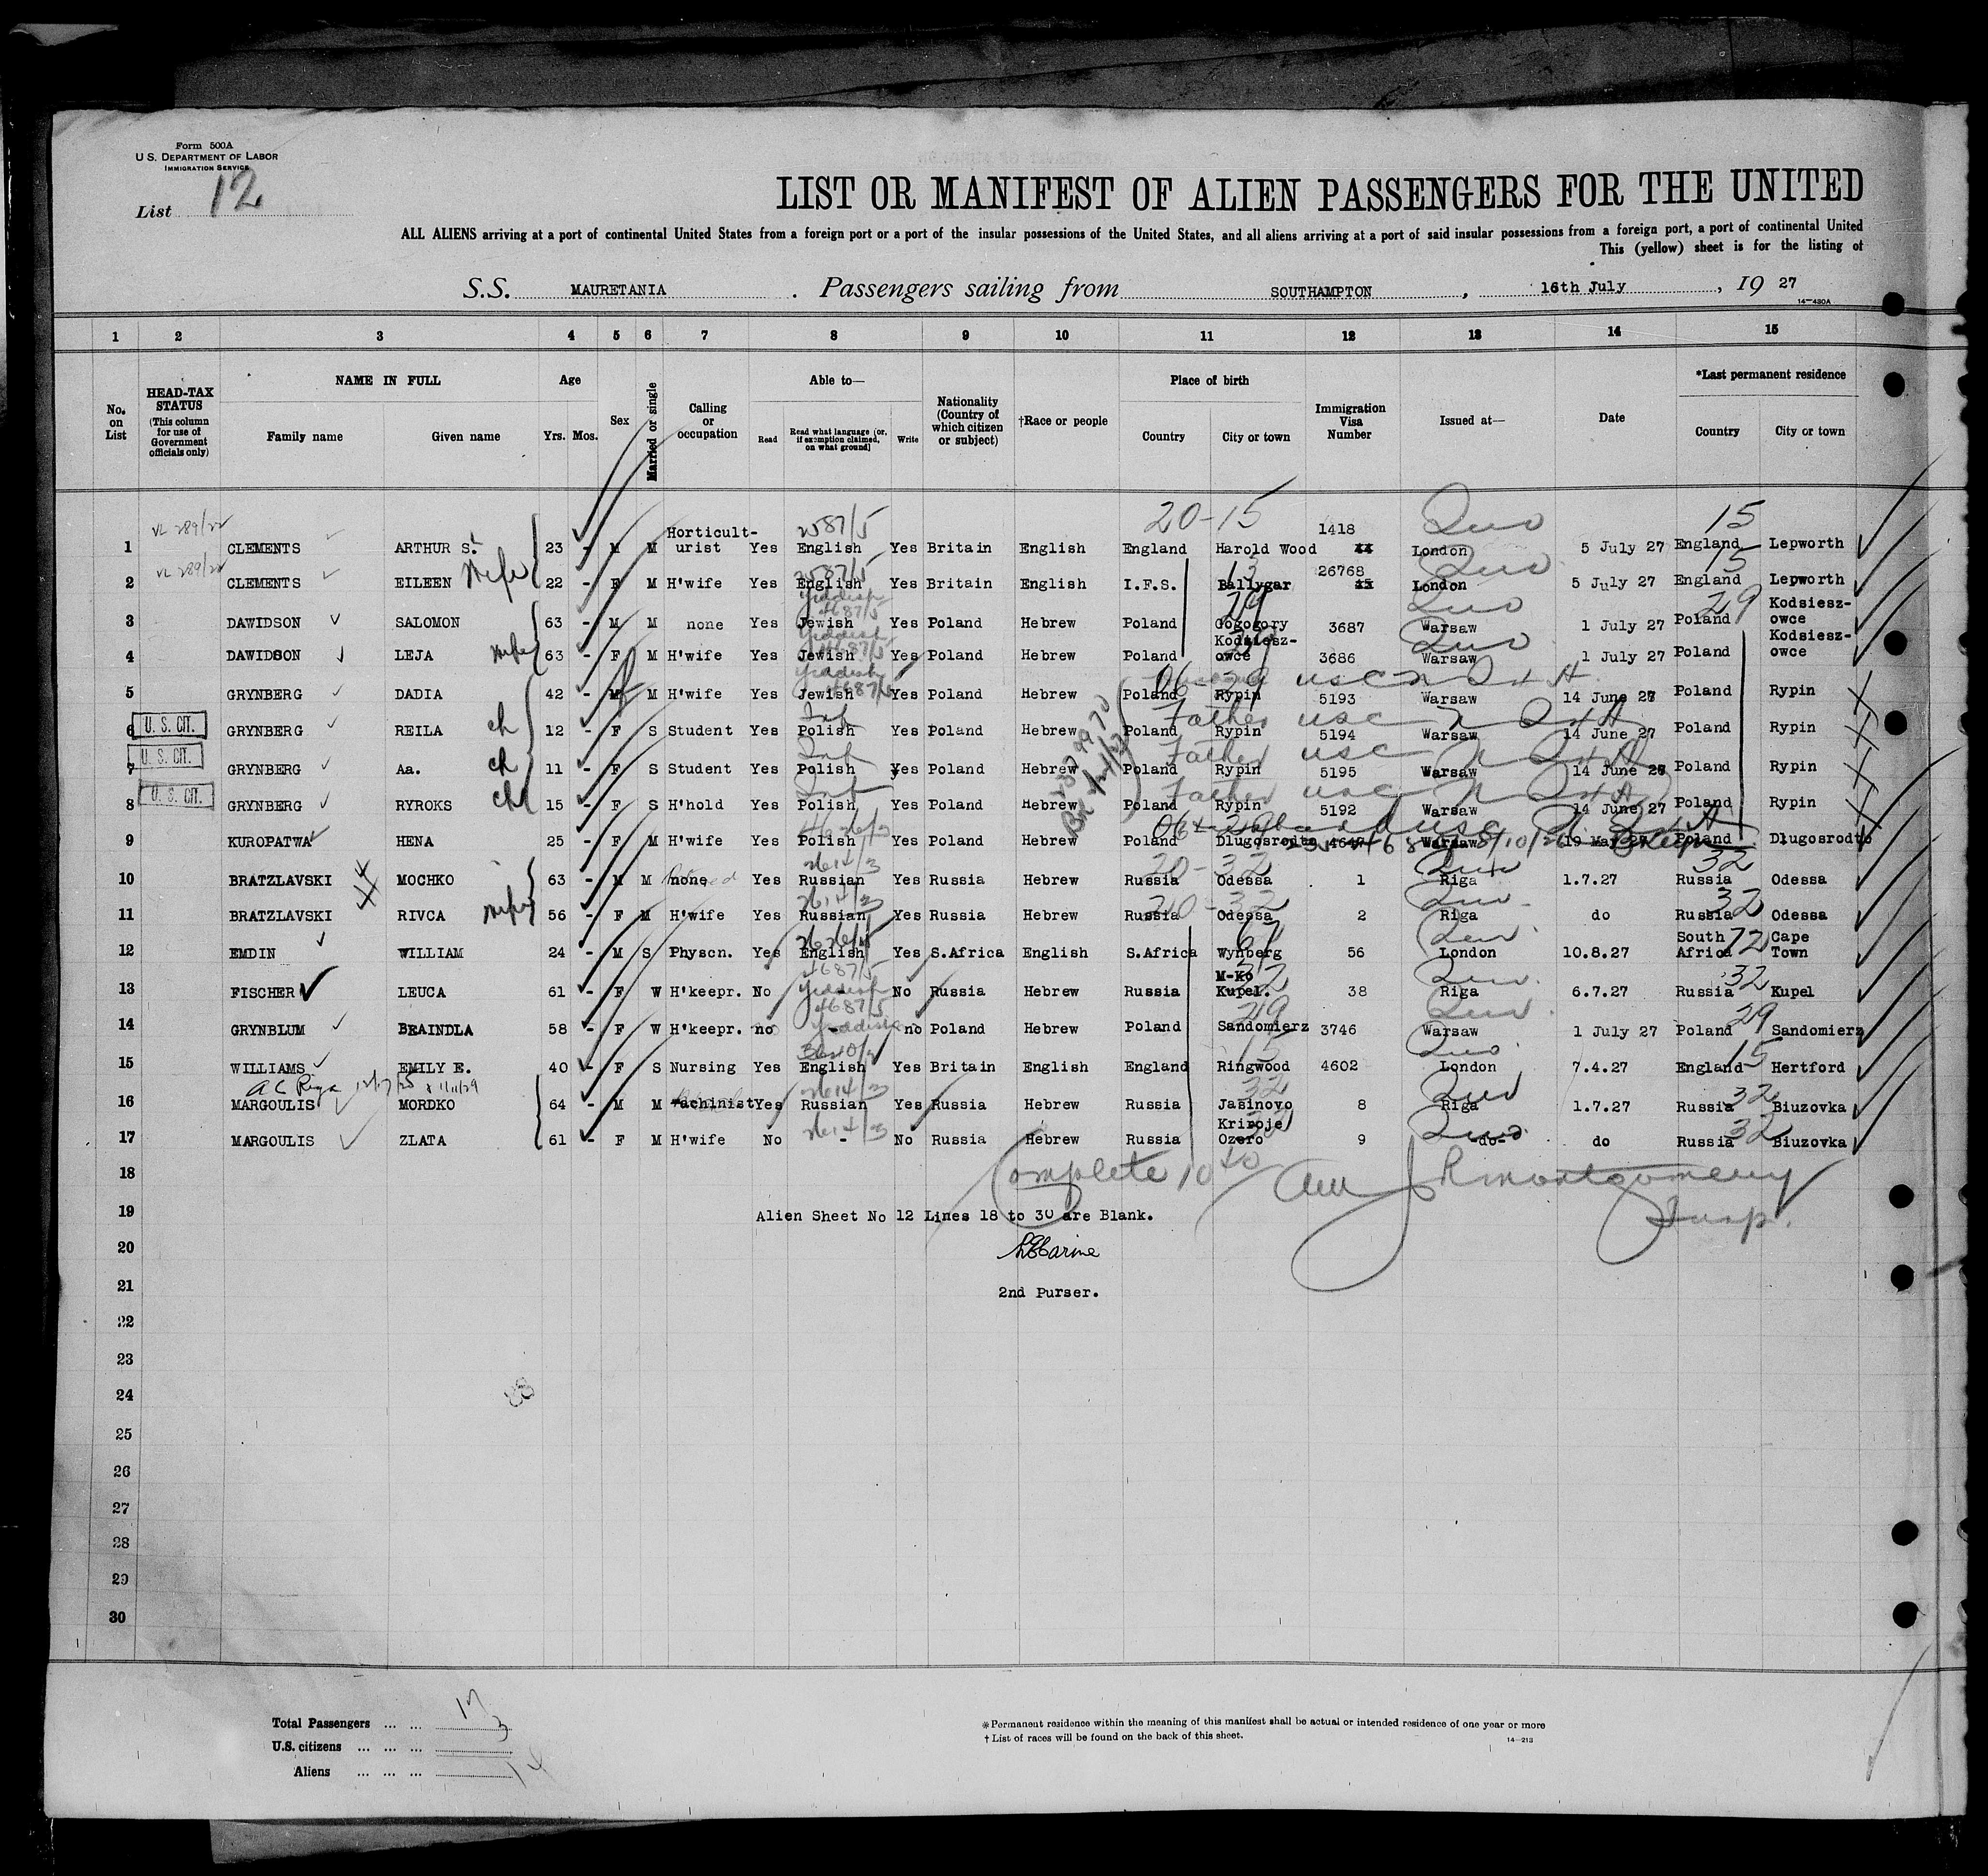 Form 500A
U.S. DEPARTMENT OF LABOR
IMMIGRATION SERVICE
List 12
LIST OR MANIFEST OF ALIEN PASSENGERS FOR THE UNITED
ALL ALIENS arriving at a port of continental United States from a foreign port or a port of the insular possessions of the United States, and all aliens arriving at a port of said insular possessions from a foreign port, a port of continental United
This (yellow) sheet is for the listing of
S.S. MAURETANIA. Passengers sailing from SOUTHAMPTON, 16th July, 19 27
14-430A
1 2 3 4 5 6 7 8 9 10 11 12 13 14 15
No. on List
HEAD-TAX STATUS (This column for use of Government officials only)
NAME IN FULL
Family name Given name
Age
Yrs. Mos.
Sex
Married or single
Calling or occupation
Able to—
Read Read what language (or, if exemption claimed, on what ground) Write
Nationality (Country of which citizen or subject)
†Race or people
Place of birth
Country City or town
Immigration Visa Number
Issued at—
Date
*Last permanent residence
Country City or town
VL 289/22 2587/5 20-15 15
1 CLEMENTS ARTHUR S. 23 - M M Horticult-urist Yes English Yes Britain English England Harold Wood 1418 London 5 July 27 England Lepworth
VL 289/22 2587/5 13 15
2 CLEMENTS EILEEN Wife 22 - F M H'wife Yes English Yes Britain English I.F.S. Ballygar 26768 London 5 July 27 England Lepworth
Yiddish 4687/5 29 29
3 DAWIDSON SALOMON 63 - M M none Yes Jewish Yes Poland Hebrew Poland Gogogory 3687 Warsaw 1 July 27 Poland Kodsiesz-owce
Yiddish 4687/5
4 DAWIDSON LEJA Wife 63 - F M H'wife Yes Jewish Yes Poland Hebrew Poland Kodziesz-owce 3686 Warsaw 1 July 27 Poland Kodsiesz-owce
Yiddish 4687/5
5 GRYNBERG DADIA 42 - F M H'wife Yes Jewish Yes Poland Hebrew Poland Rypin 5193 Warsaw 14 June 27 Poland Rypin
U. S. CIT. Father usc
6 GRYNBERG REILA ch 12 - F S Student Yes Polish Yes Poland Hebrew Poland Rypin 5194 Warsaw 14 June 27 Poland Rypin
U. S. CIT. Father usc
7 GRYNBERG Aa. ch 11 - F S Student Yes Polish Yes Poland Hebrew Poland Rypin 5195 Warsaw 14 June 27 Poland Rypin
U. S. CIT. Father usc
8 GRYNBERG RYROKS ch 15 - F S H'hold Yes Polish Yes Poland Hebrew Poland Rypin 5192 Warsaw 14 June 27 Poland Rypin
9 KUROPATWA HENA 25 - F M H'wife Yes Polish Yes Poland Hebrew Poland Dlugosrodto 4647 Warsaw 19 May 27 Poland Dlugosrodto
2614/3 20-32 32
10 BRATZLAVSKI MOCHKO 63 - M M none Yes Russian Yes Russia Hebrew Russia Odessa 1 Riga 1.7.27 Russia Odessa
2614/3 20-32 32
11 BRATZLAVSKI RIVCA Wife 56 - F M H'wife Yes Russian Yes Russia Hebrew Russia Odessa 2 Riga do Russia Odessa
72
12 EMDIN WILLIAM 24 - M S Physcn. Yes English Yes S.Africa English S.Africa Wynberg 56 London 10.8.27 South Africa Cape Town
4687/5 Yiddish 32 32
13 FISCHER LEUCA 61 - F W H'keepr. No - No Russia Hebrew Russia M-Ko Kupel. 38 Riga 6.7.27 Russia Kupel
4687/5 Yiddish 29 29
14 GRYNBLUM BRAINDLA 58 - F W H'keepr. no - no Poland Hebrew Poland Sandomierz 3746 Warsaw 1 July 27 Poland Sandomierz
15 15
15 WILLIAMS EMILY E. 40 - F S Nursing Yes English Yes Britain English England Ringwood 4602 London 7.4.27 England Hertford
2614/3 32 32
16 MARGOULIS MORDKO 64 - M M Machinist Yes Russian Yes Russia Hebrew Russia Jasinovo 8 Riga 1.7.27 Russia Biuzovka
2614/3 32 32
17 MARGOULIS ZLATA 61 - F M H'wife No - No Russia Hebrew Russia Kriroje Ozero 9 -do- do Russia Biuzovka
18 Complete 10 40 J R Montgomery
19 Alien Sheet No 12 Lines 18 to 30 are Blank. Insp.
20
21 2nd Purser.
22
23
24
25
26
27
28
29
30
Total Passengers ... ... 17
U.S. citizens ... ... ... 3
Aliens ... ... ... 14
*Permanent residence within the meaning of this manifest shall be actual or intended residence of one year or more
†List of races will be found on the back of this sheet.
14-213